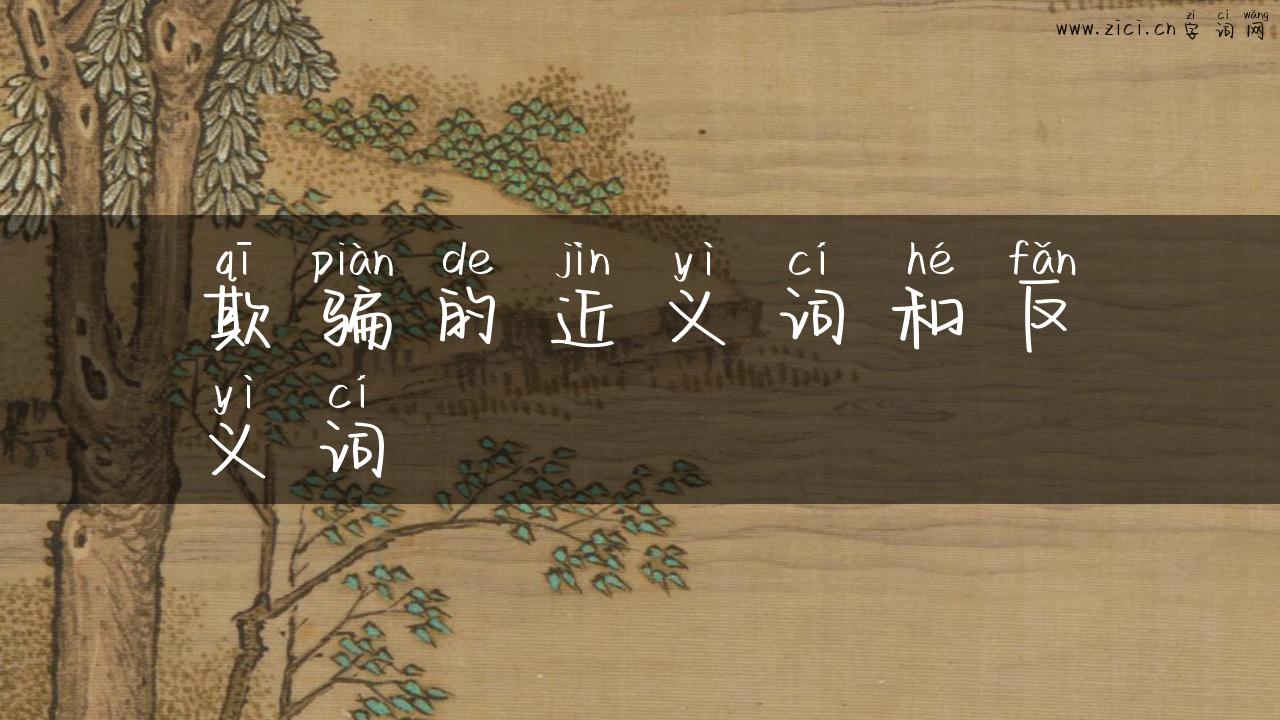 zì cí wǎng
www.zici.cn 字词网
qī piàn de jìn yì cí hé fǎn
欺骗的近义词和反
yì cí
义词